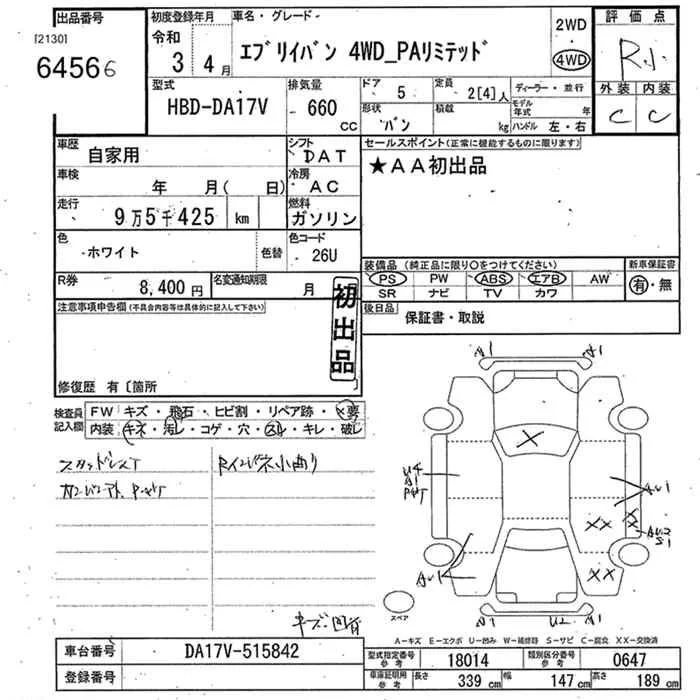 出品番号
[2130]
64566
初度登録年月
令和
3年 4月
車名・グレード
エブリイバン 4WD_PAリミテッド
2WD
4WD
評価点
R小
外装 内装
C C
型式
HBD-DA17V
排気量
660 CC
ドア 5
定員 2[4]人
形状 バン
積載 kg
ディーラー・並行
モデル年式 年
ハンドル 左・右
車歴
自家用
シフト
DAT
車検
年 月( 日)
冷房
AC
走行
9万5千425 km
燃料
ガソリン
色
ホワイト
色替
色コード
26U
R券
8,400円
名変通知期限
月
初出品
セールスポイント(正常に機能するものに限ります)
★AA初出品
装備品 (純正品に限り○をつけてください)
PS PW ABS エアB AW
SR ナビ TV カワ
新車保証書
有・無
後日品
保証書・取説
注意事項申告欄(不具合内容等は具体的に記入して下さい)
修復歴 有〔箇所
検査員記入欄
FW キズ・飛石・ヒビ割・リペア跡・×要
内装 キズ・汚レ・コゲ・穴・スレ・キレ・破レ
A1 A1
U4
A1
AU1
AU2
S1
AU1
S1 U2 A1
スペア
A-キズ E-エクボ U-凹み W-補修跡 S-サビ C-腐食 XX-交換済
車台番号
DA17V-515842
登録番号
型式指定番号 参考 18014
類別区分番号 参考 0647
車庫証明用 参考 長さ 339 cm 幅 147 cm 高さ 189 cm